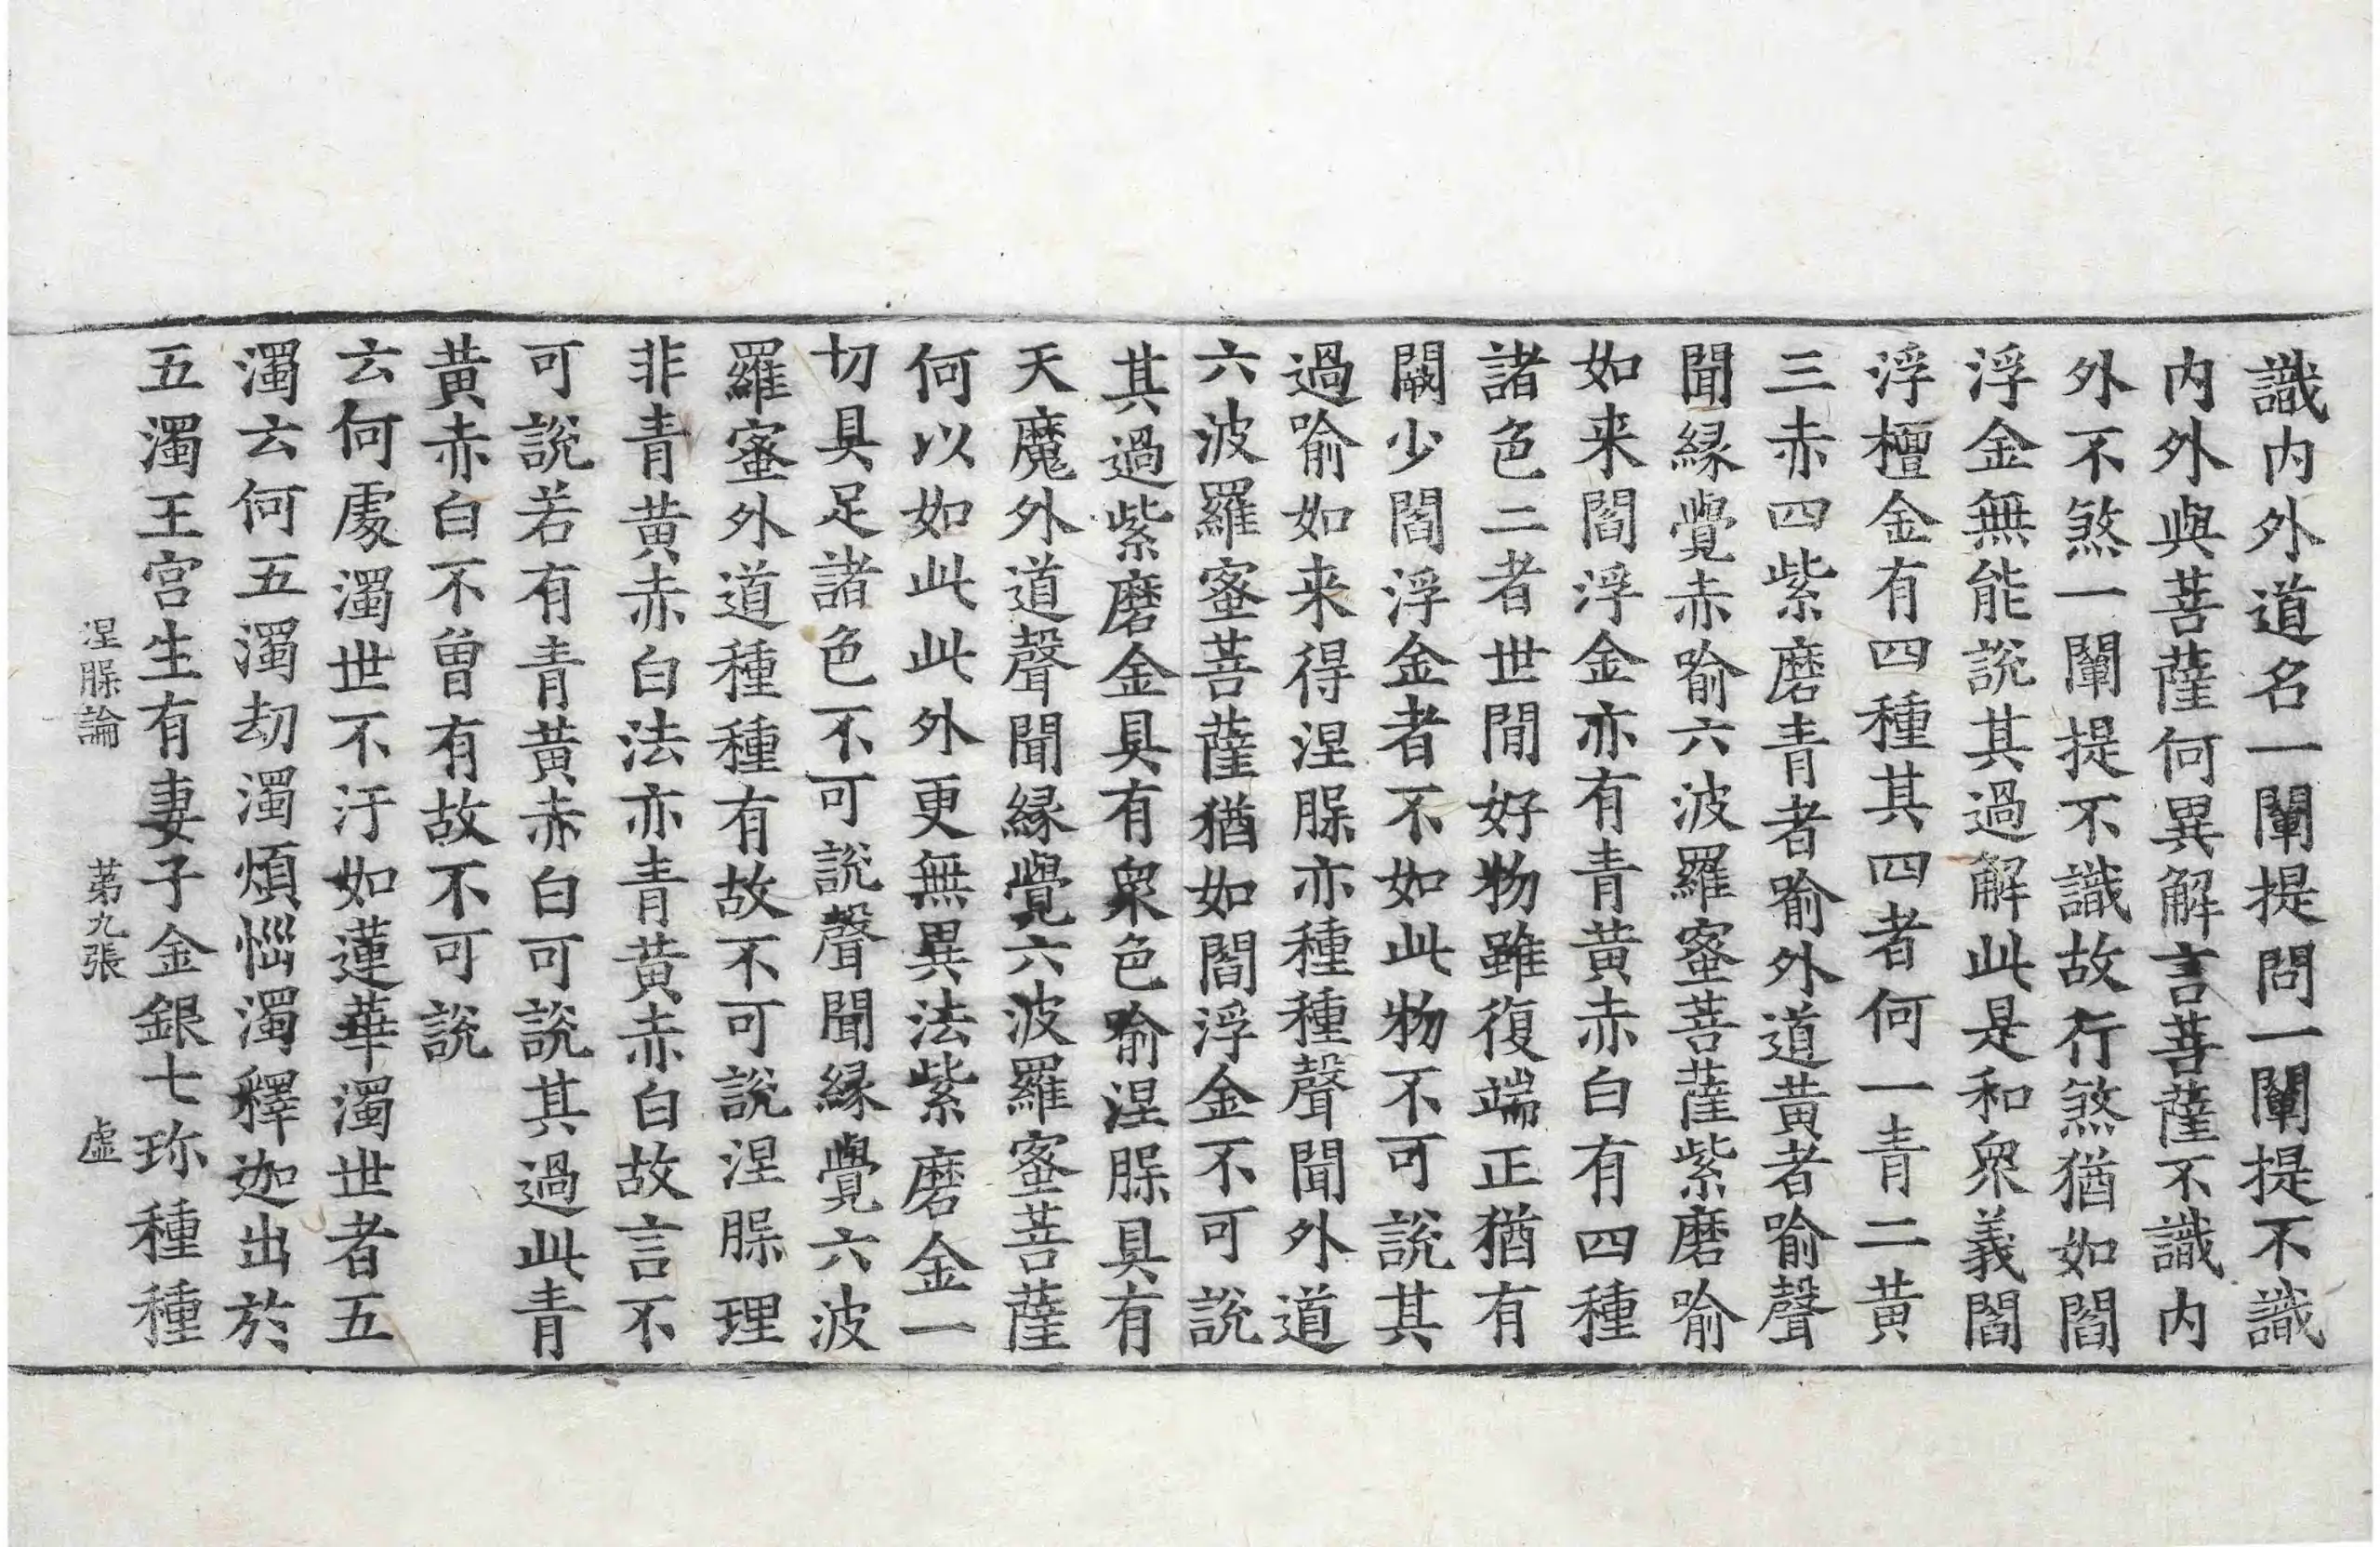 識内外道名一闡提問一闡提不識
内外與菩薩何異解言菩薩不識内
外不煞一闡提不識故行煞猶如閻
浮金無能説其過解此是和衆義閻
浮檀金有四種其四者何一青二黄
三赤四紫磨青者喻外道黄者喻聲
聞縁覺赤喻六波羅蜜菩薩紫磨喻
如来閻浮金亦有青黄赤白有四種
諸色二者世間好物雖復端正猶有
闕少閻浮金者不如此物不可説其
過喻如来得涅槃亦種種聲聞外道
六波羅蜜菩薩猶如閻浮金不可説
其過紫磨金具有衆色喻涅槃具有
天魔外道聲聞縁覺六波羅蜜菩薩
何以如此此外更無異法紫磨金一
切具足諸色不可説聲聞縁覺六波
羅蜜外道種種有故不可説涅槃理
非青黄赤白法亦青黄赤白故言不
可説若有青黄赤白可説其過此青
黄赤白不曾有故不可説
云何處濁世不汙如蓮華濁世者五
濁云何五濁劫濁煩惱濁釋迦出於
五濁王宫生有妻子金銀七珎種種
涅槃論 第九張 虛